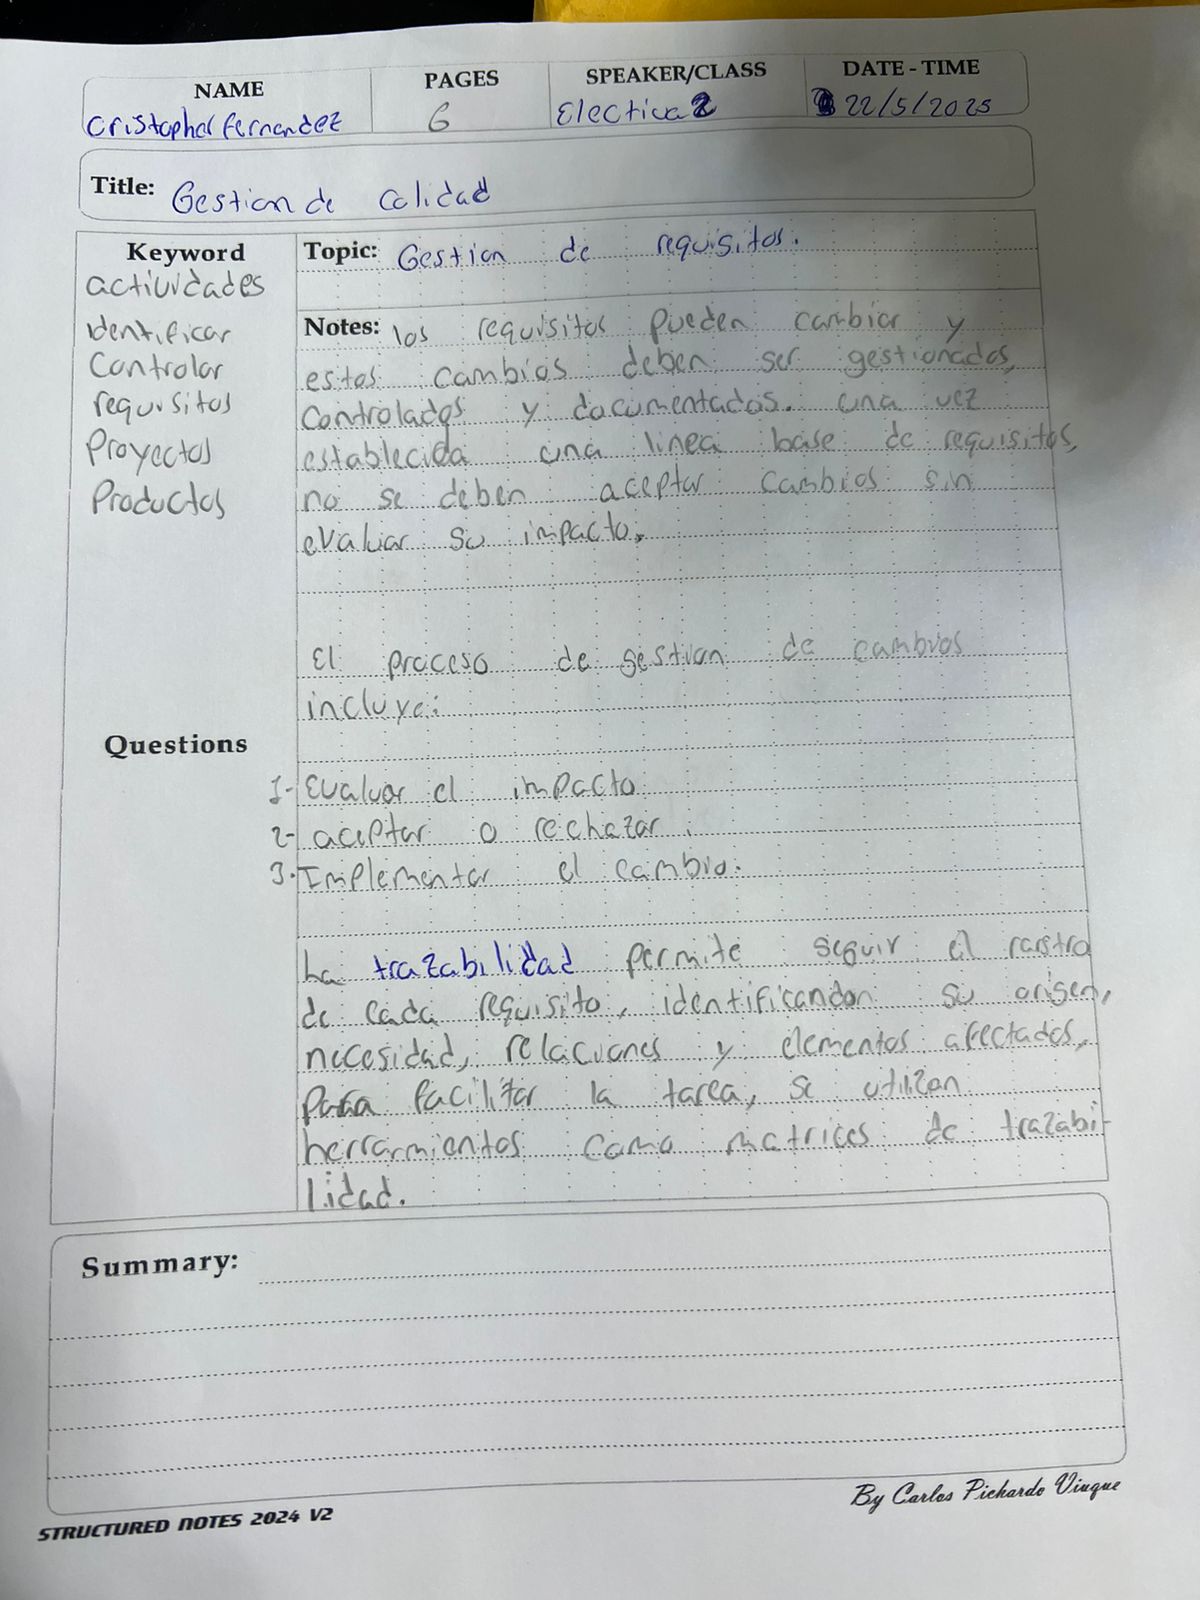 NAME
PAGES
SPEAKER/CLASS
DATE - TIME
Cristopher Fernandez
6
Electiva 2
22/5/2025
Title: Gestion de calidad
Keyword
actividades
identificar
Controlar
requisitos
Proyectos
Productos
Topic: Gestion de requisitos.
Notes: los requisitos pueden cambiar y
estos cambios deben ser gestionados,
Controlados y documentados. una vez
establecida una linea base de requisitos,
no se deben aceptar cambios sin
evaluar su impacto.
El proceso de gestion de cambios
incluye:
Questions
1- Evaluar el impacto
2- aceptar o rechazar.
3- Implementar el cambio.
La trazabilidad permite seguir el rastro
de cada requisito, identificandon su origen,
necesidad, relaciones y elementos afectados,
para facilitar la tarea, se utilizan
herramientas como matrices de trazabi-
lidad.
Summary:
By Carlos Pichardo Viuque
STRUCTURED NOTES 2024 V2